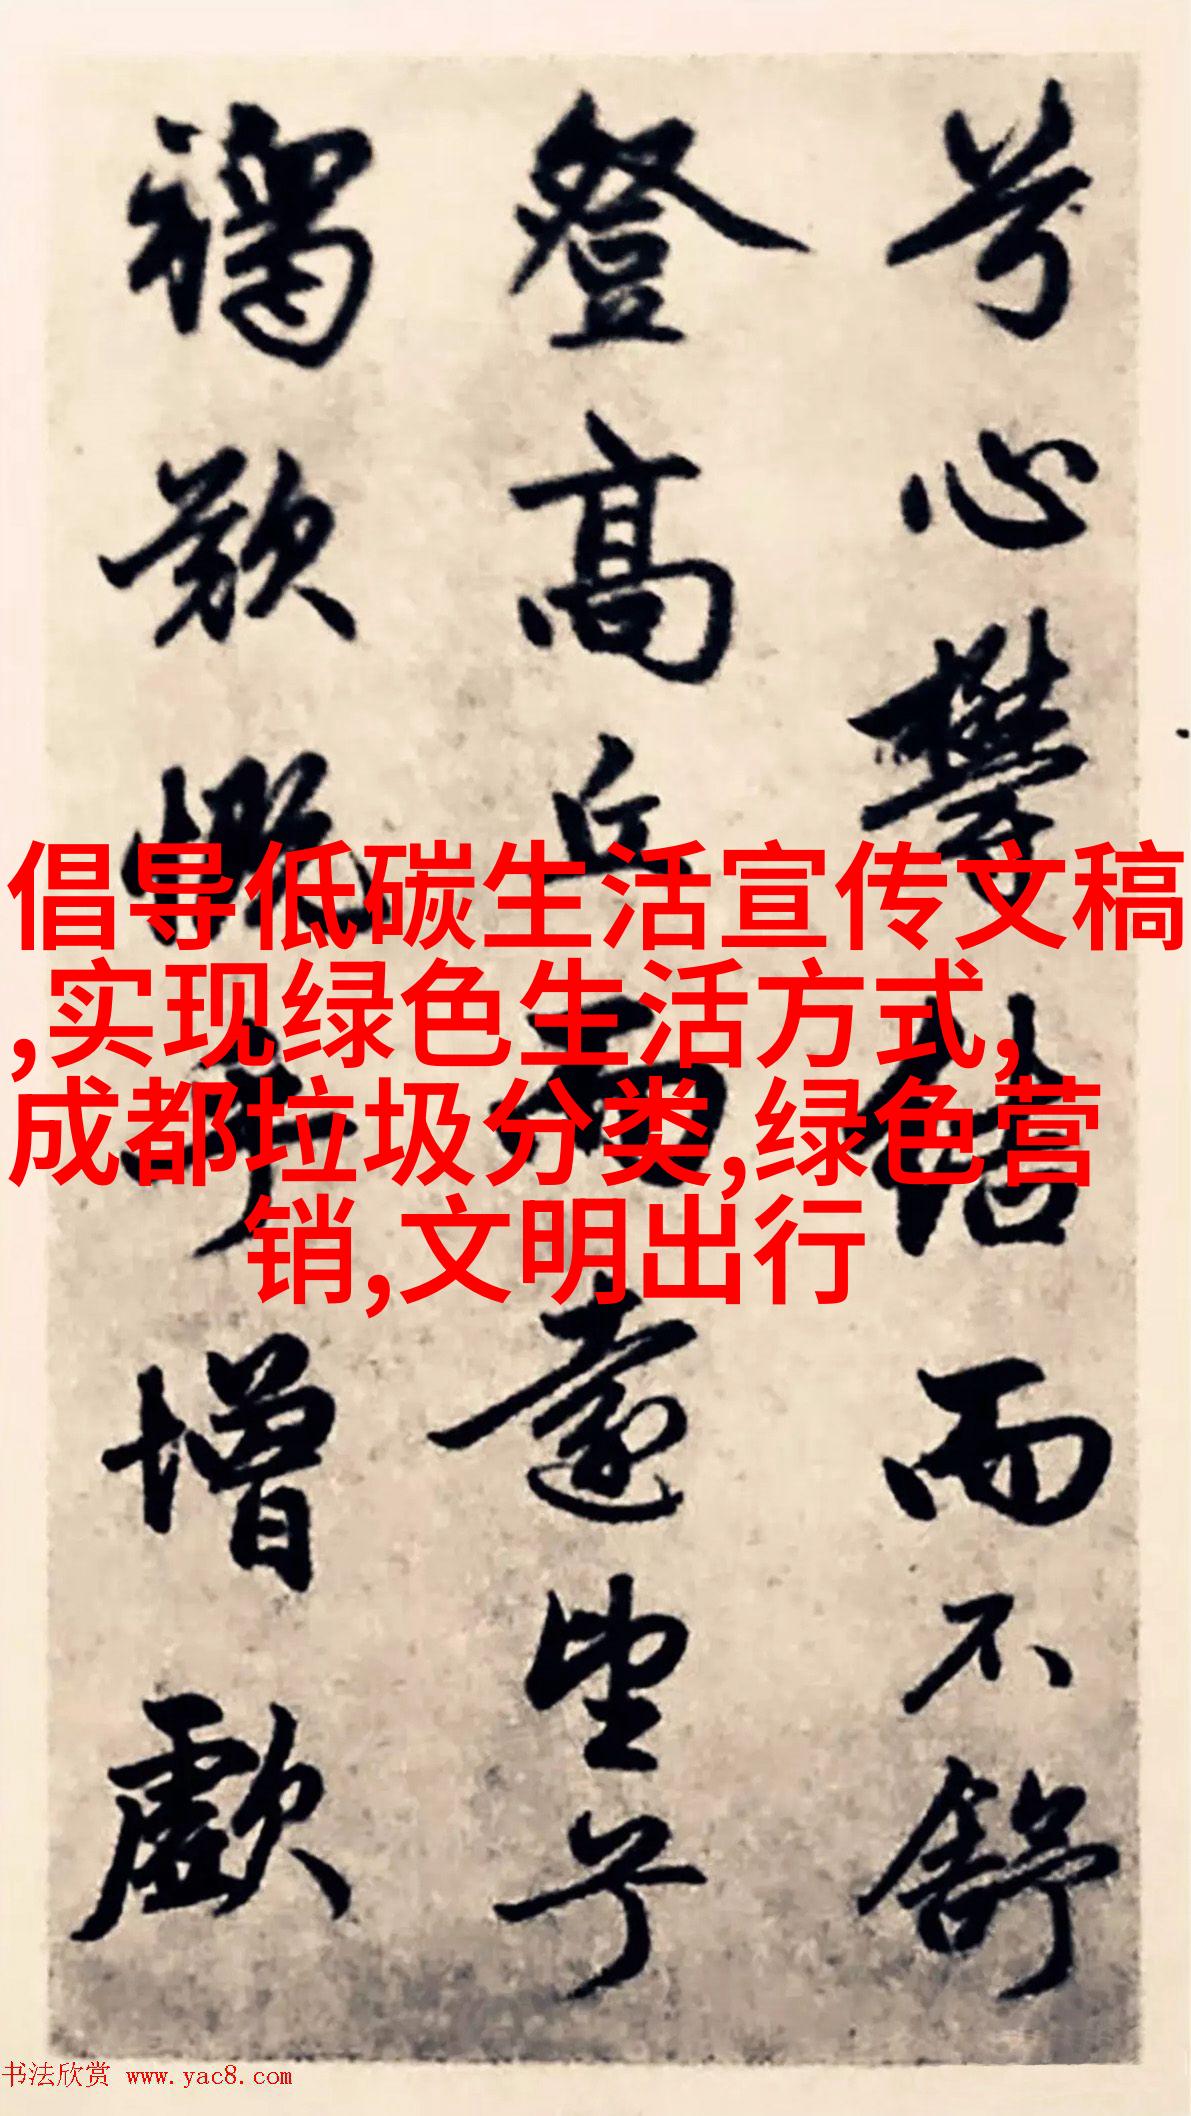 兮心鬱结而不舒
登高丘而遠望兮
慨乎增歔
倡导低碳生活宣传文稿
,实现绿色生活方式,
成都垃圾分类,绿色营
销,文明出行
书法欣赏 www.yac8.com